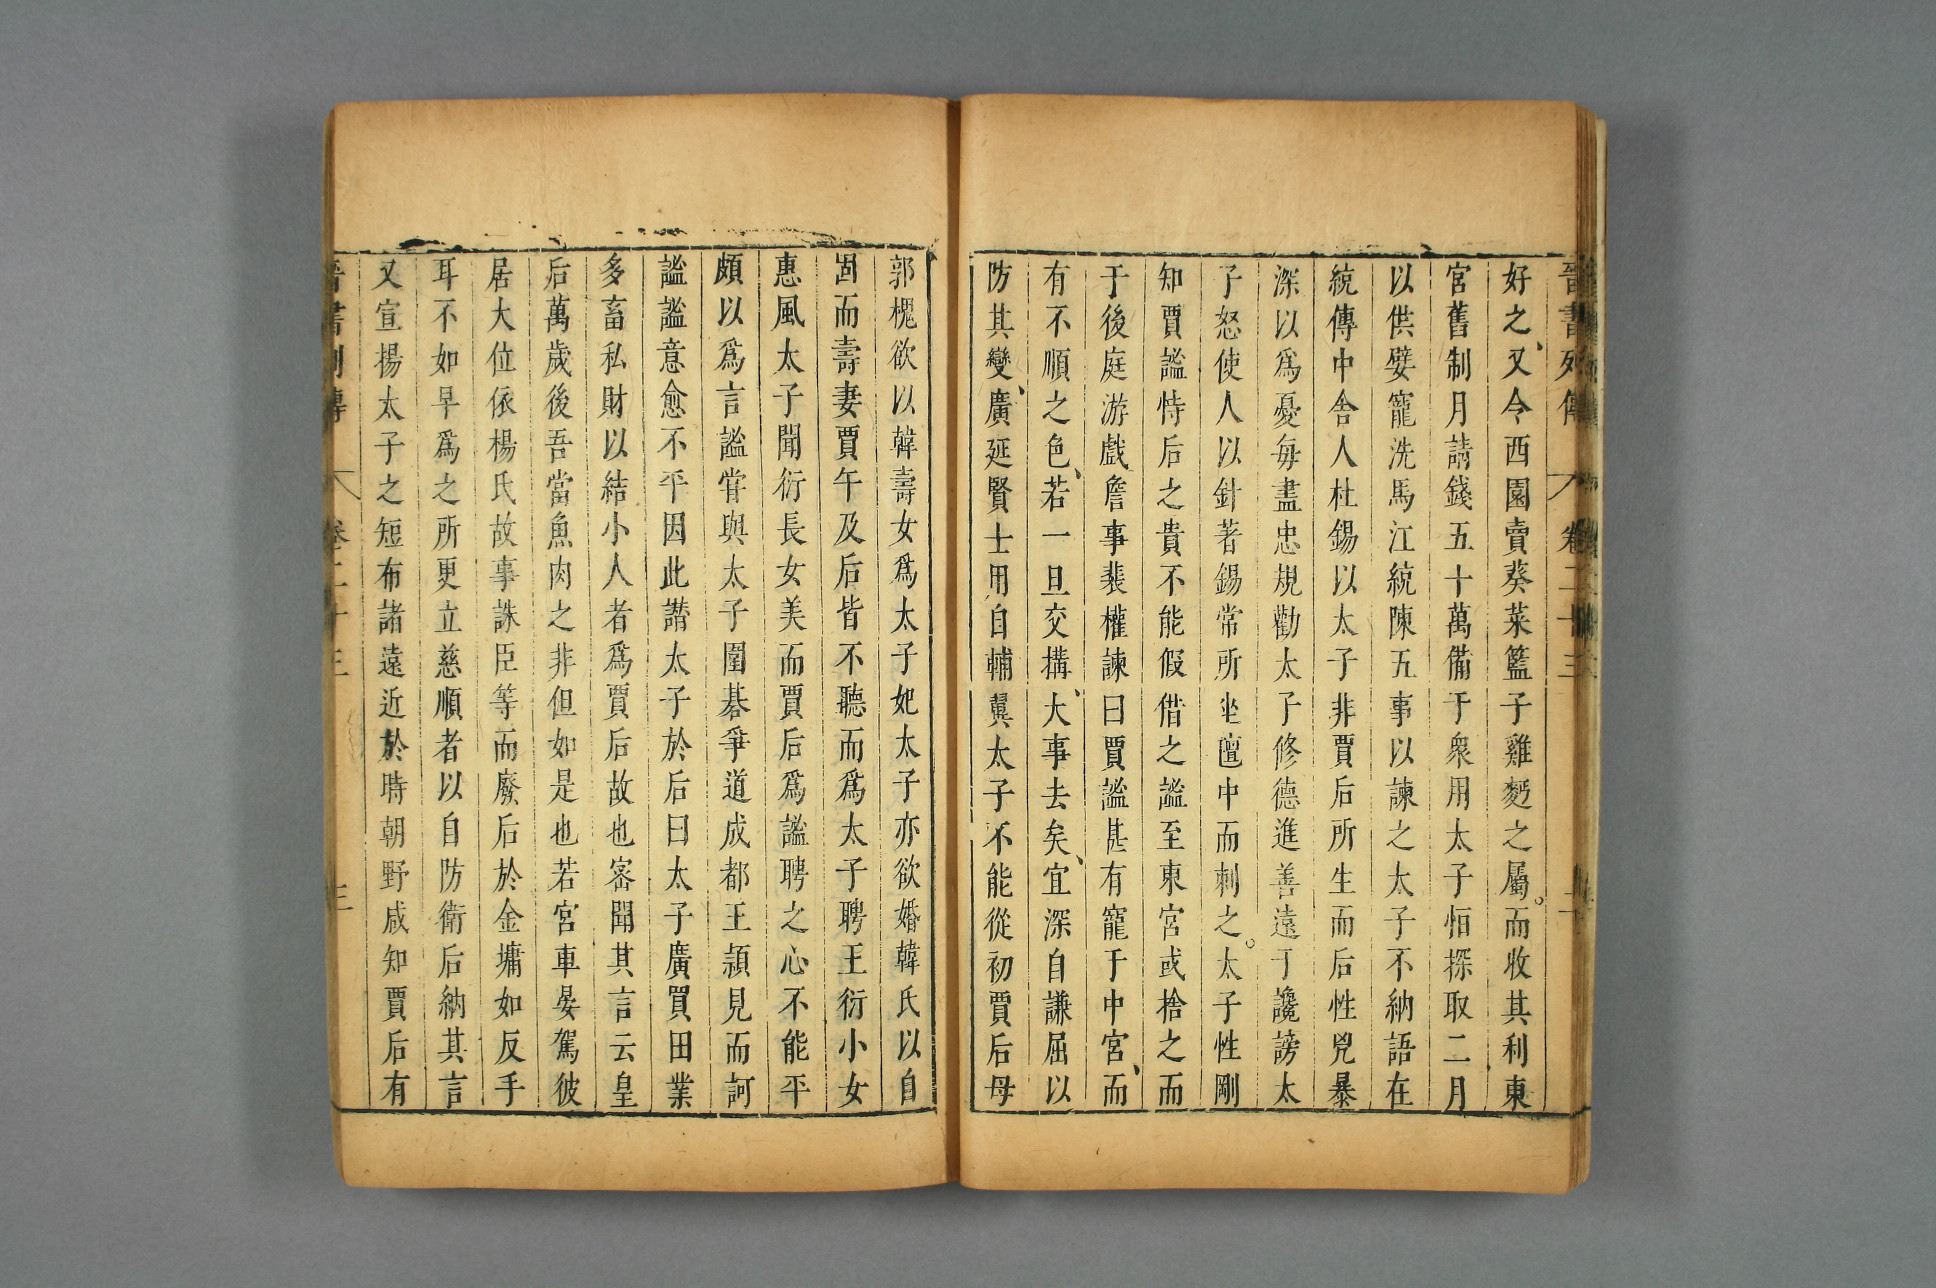 晉書列傳 卷二十三
好之、又令西園賣葵菜籃子雞麪之屬。而收其利東
宮舊制月請錢五十萬備于衆用太子恒探取二月
以供嬖寵洗馬江統陳五事以諫之太子不納語在
統傳中舍人杜錫以太子非賈后所生而后性兇暴
深以爲憂每盡忠規勸太子修德進善遠于讒謗太
子怒使人以針著錫常所坐氊中而刺之。太子性剛
知賈謐恃后之貴不能假借之謐至東宮或捨之而
于後庭游戲詹事裴權諫曰賈謐甚有寵于中宮、而
有不順之色、若一旦交搆、大事去矣、宜深自謙屈以
防其變、廣延賢士用自輔翼太子不能從初賈后母
郭槐欲以韓壽女爲太子妃太子亦欲婚韓氏以自
固而壽妻賈午及后皆不聽而爲太子聘王衍小女
惠風太子聞衍長女美而賈后爲謐聘之心不能平
頗以爲言謐甞與太子圍碁爭道成都王頴見而訶
謐謐意愈不平因此譖太子於后曰太子廣買田業
多畜私財以結小人者爲賈后故也宻聞其言云皇
后萬歲後吾當魚肉之非但如是也若宮車晏駕彼
居大位依楊氏故事誅臣等而廢后於金墉如反手
耳不如早爲之所更立慈順者以自防衛后納其言
又宣揚太子之短布諸遠近於時朝野咸知賈后有
晉書列傳 卷二十三 三